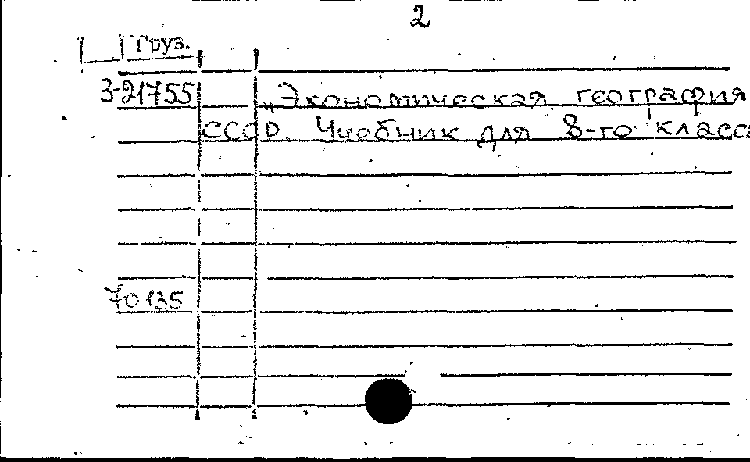 2
Груз.
3-21755 „Экономическая география
СССР. Учебник для 8-го класса
70135